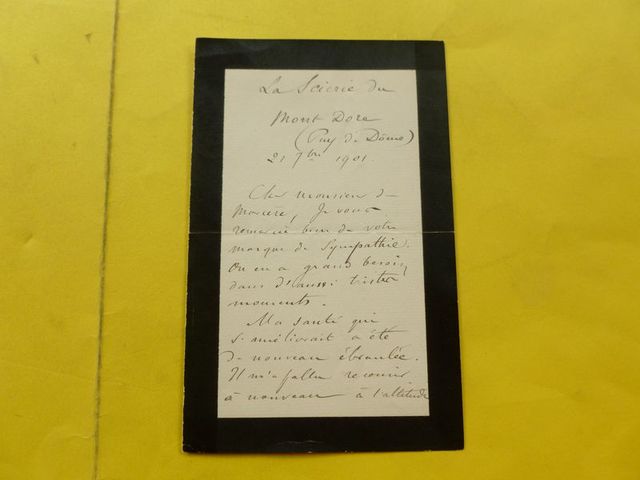 La Scierie du
Mont Dore
(Puy de Dôme)
21 7bre 1901.
Cher monsieur de
Morcere, Je vous
remercie bien de votre
marque de sympathie.
On en a grand besoin
dans d'aussi tristes
moments.
Ma santé qui
s'améliorait a été
de nouveau ébranlée.
Il m'a fallu recourir
à nouveau à l'altitude